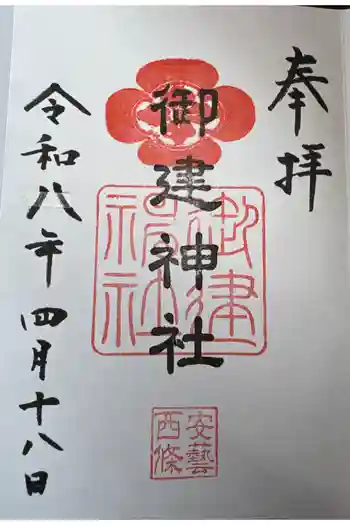 奉拝
御建神社
御建
神社
安藝
西條
令和八年四月十八日